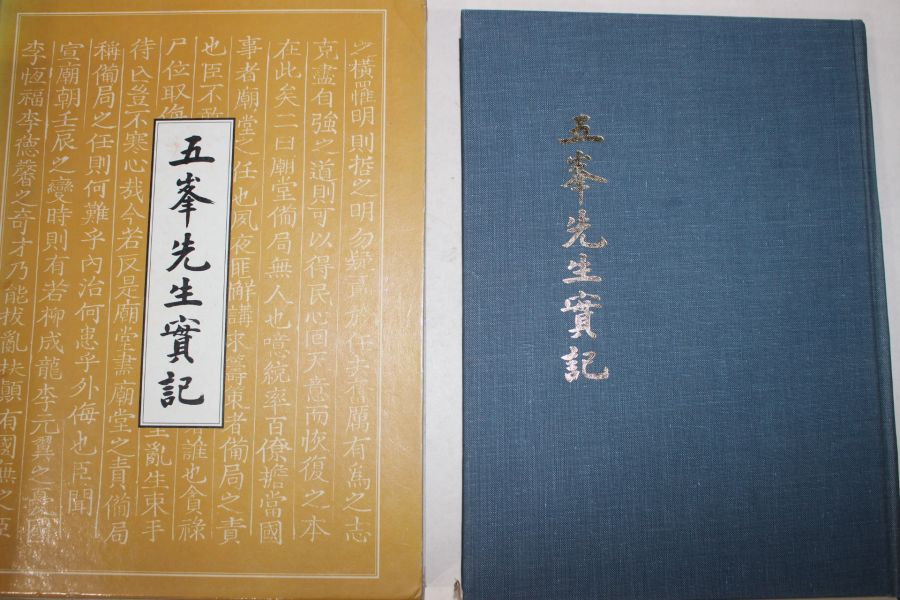 五峯先生實記
之橫罹明則哲之明勿疑
克盡自強之道則可以得民
意而恢復之本
在此矣二曰廟堂備局無人也噫統率百僚擔當國
事者廟堂之任也夙夜匪懈講求籌策者備局之責
也臣不敢
誰也貪祿
尸位取侮
亂生束手
待亡豈不寒心哉今若反是廟堂盡廟堂之責備局
稱備局之任則何難乎內治何患乎外侮也臣聞
宣廟朝壬辰之變時則有若柳成龍李元翼之
李恆福李德馨之奇才乃能拔亂扶顛有國無之臣
五峯先生實記